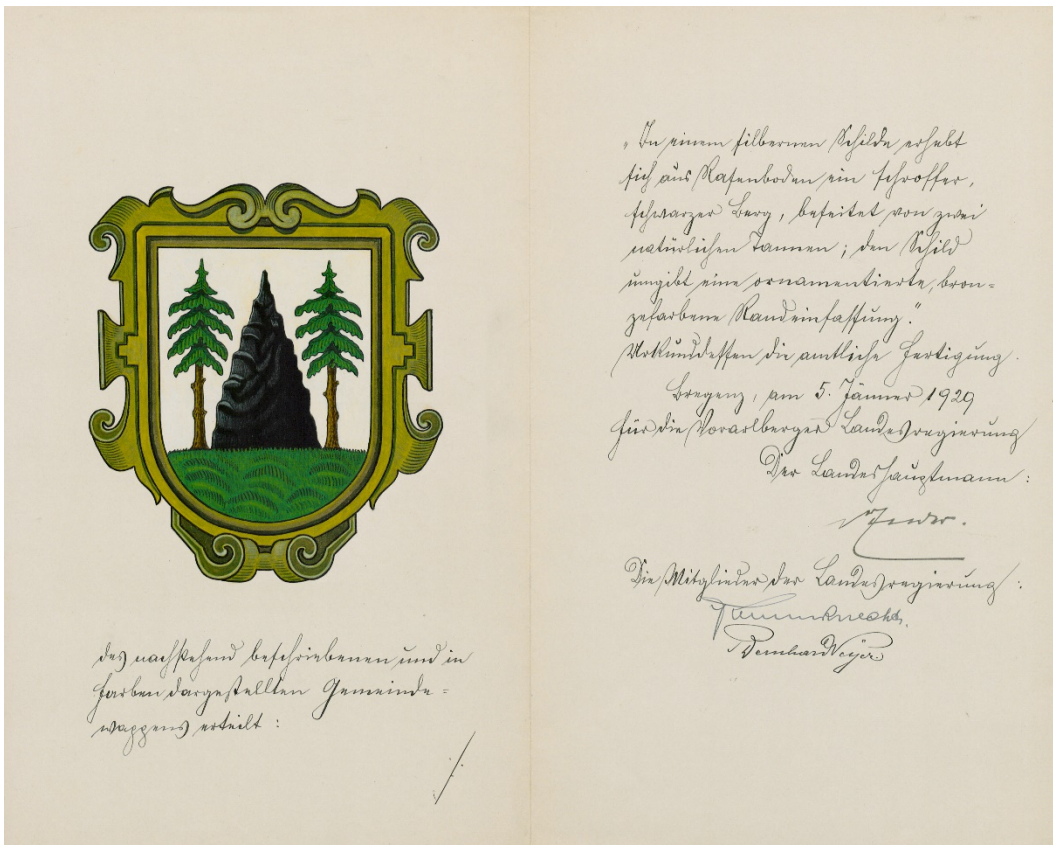 des nachstehend beschriebenen und in
Farben dargestellten Gemeinde-
wappens erteilt:
„In einem silbernen Schilde erhebt
sich aus Rasenboden ein schroffer,
schwarzer Berg, beseitet von zwei
natürlichen Tannen; den Schild
umgibt eine ornamentierte, bron-
zefarbene Randeinfassung."
Urkunddessen die amtliche Fertigung.
Bregenz, am 5. Jänner 1929
Für die Vorarlberger Landesregierung
Der Landeshauptmann:
Die Mitglieder der Landesregierung: